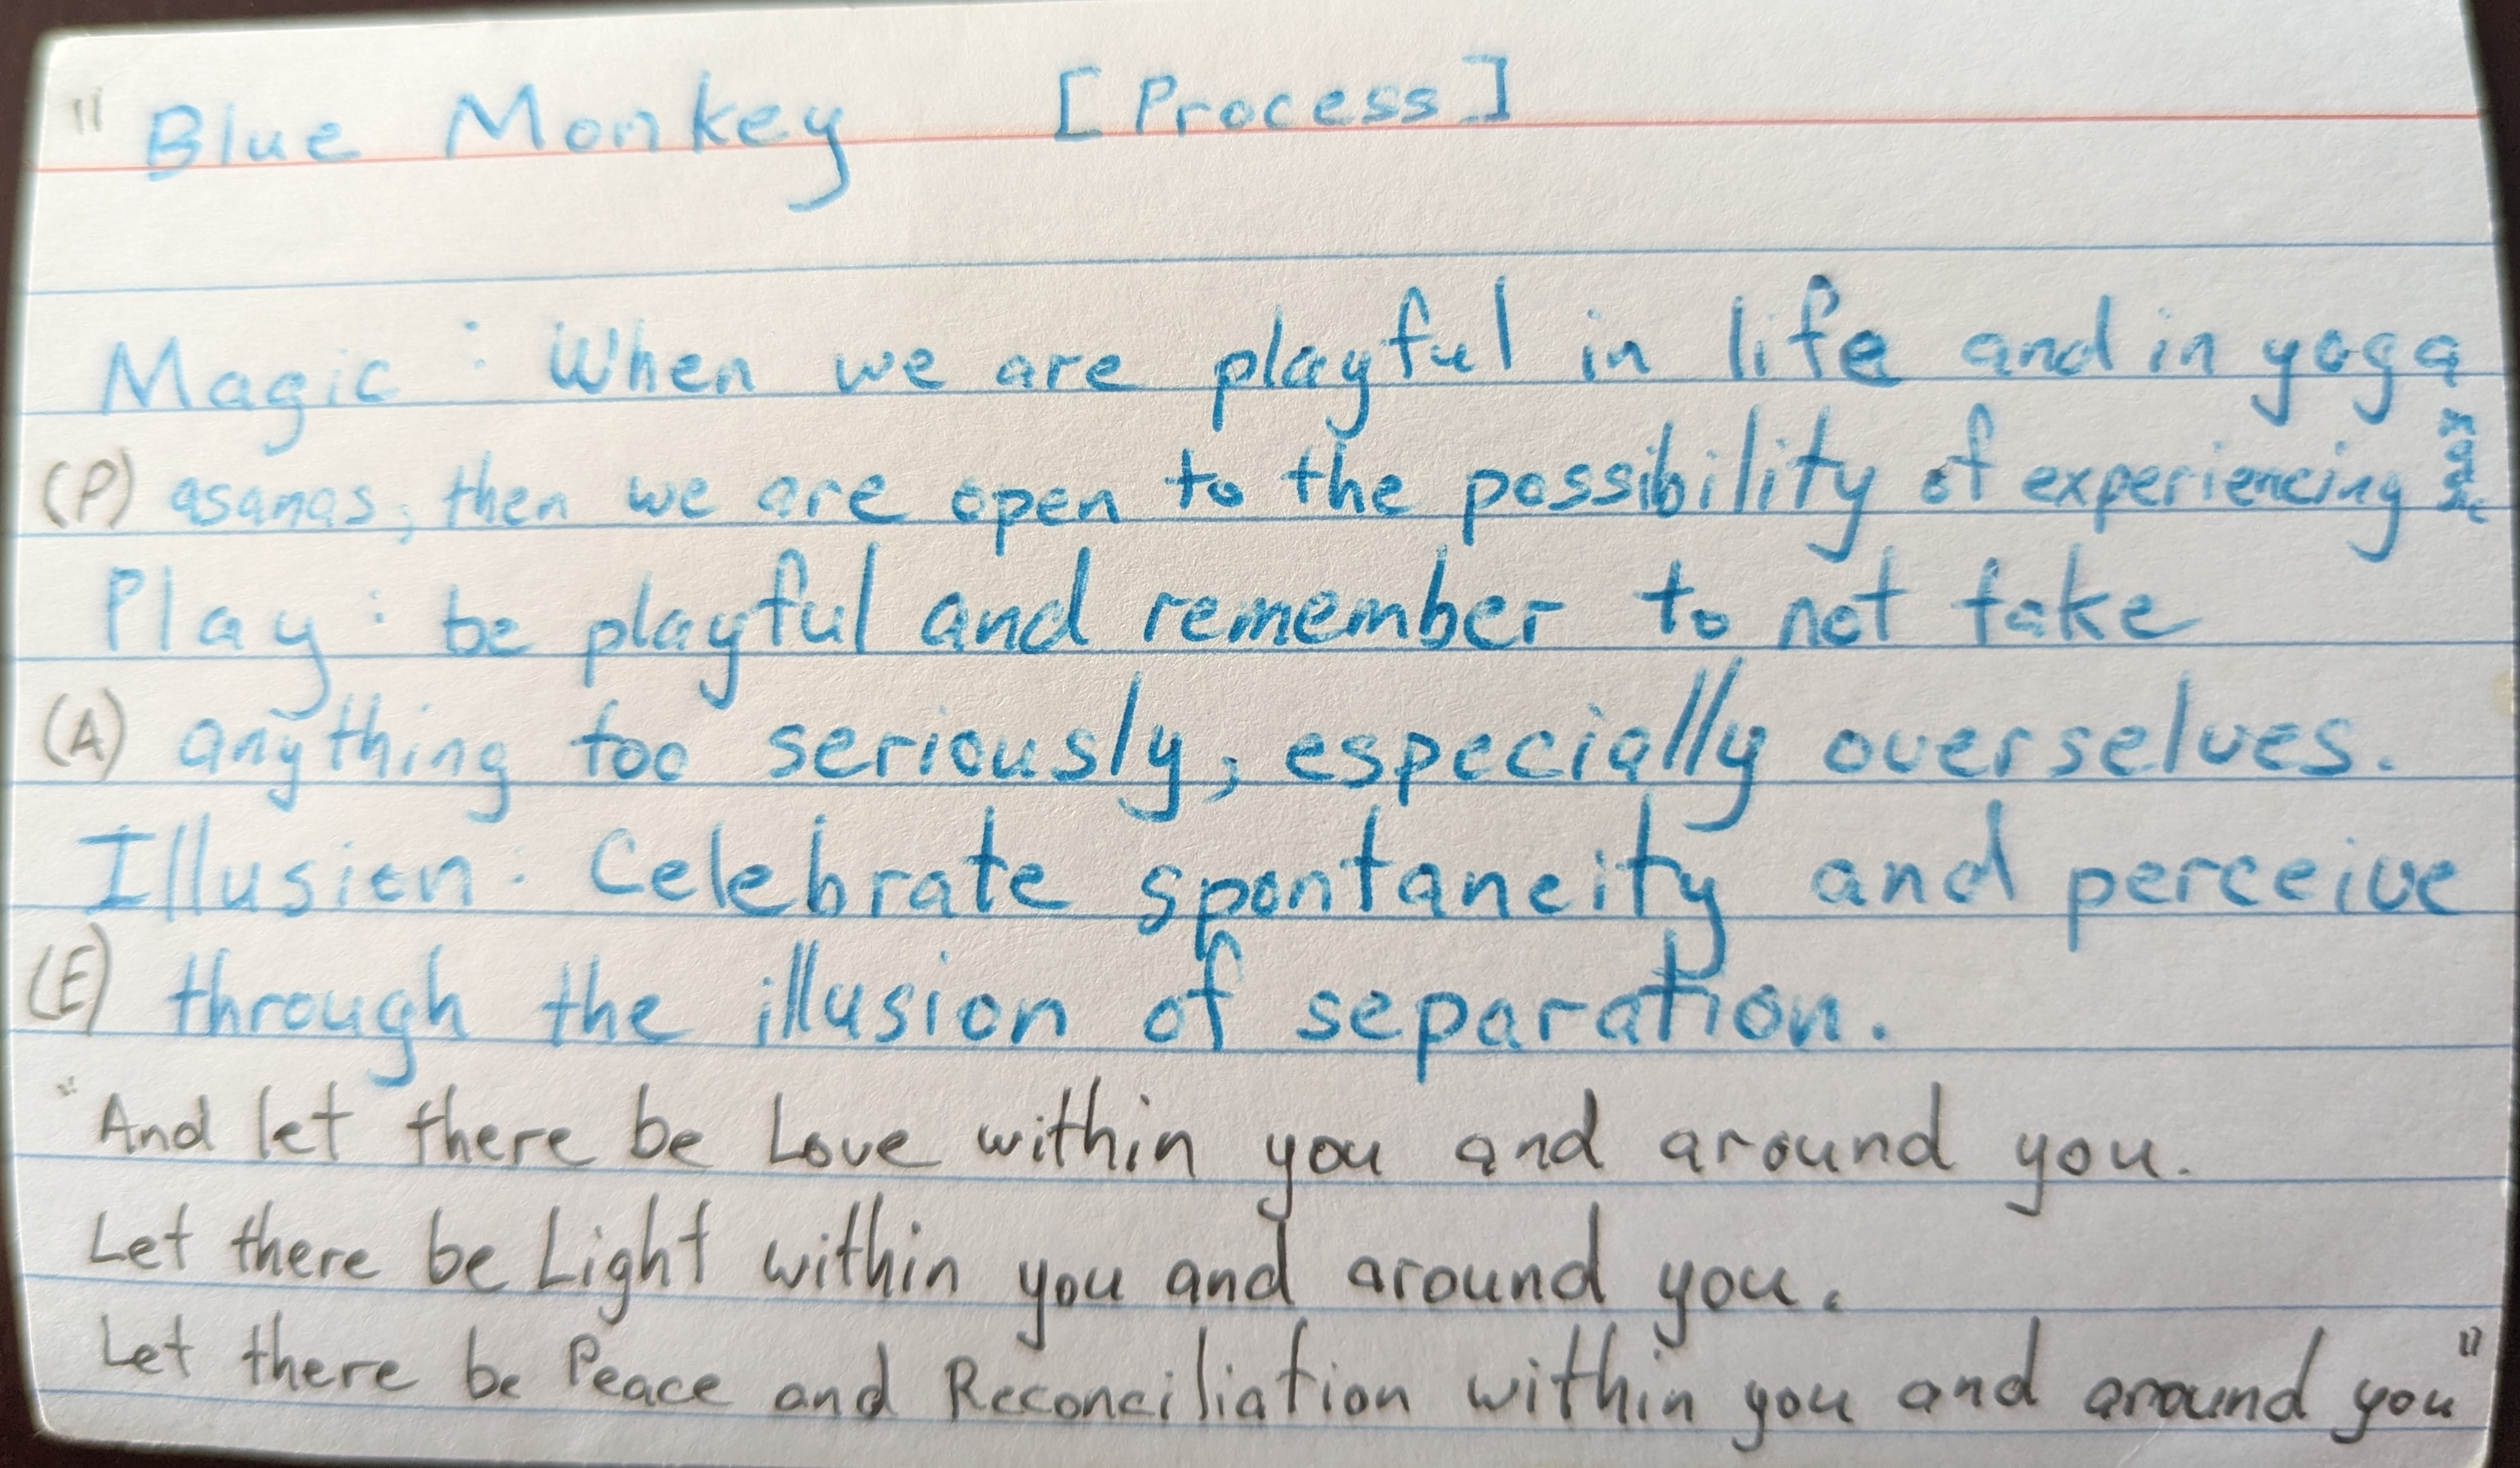 " Blue Monkey [Process]
Magic : When we are playful in life and in yoga
(P) asanas, then we are open to the possibility of experiencing magic
Play : be playful and remember to not take
(A) anything too seriously, especially overselves.
Illusion : Celebrate spontaneity and perceive
(E) through the illusion of separation.
"And let there be Love within you and around you.
Let there be Light within you and around you.
Let there be Peace and Reconciliation within you and around you"